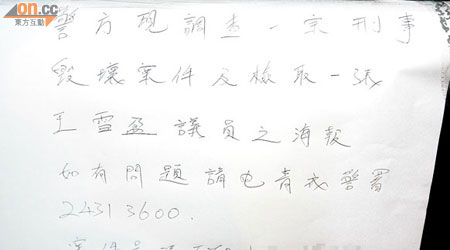 on.cc
東方互動
警方現調查一宗刑事
毀壞案件及檢取一張
王雪盈議員之海報
如有問題請电青衣警署
24313600.
案件